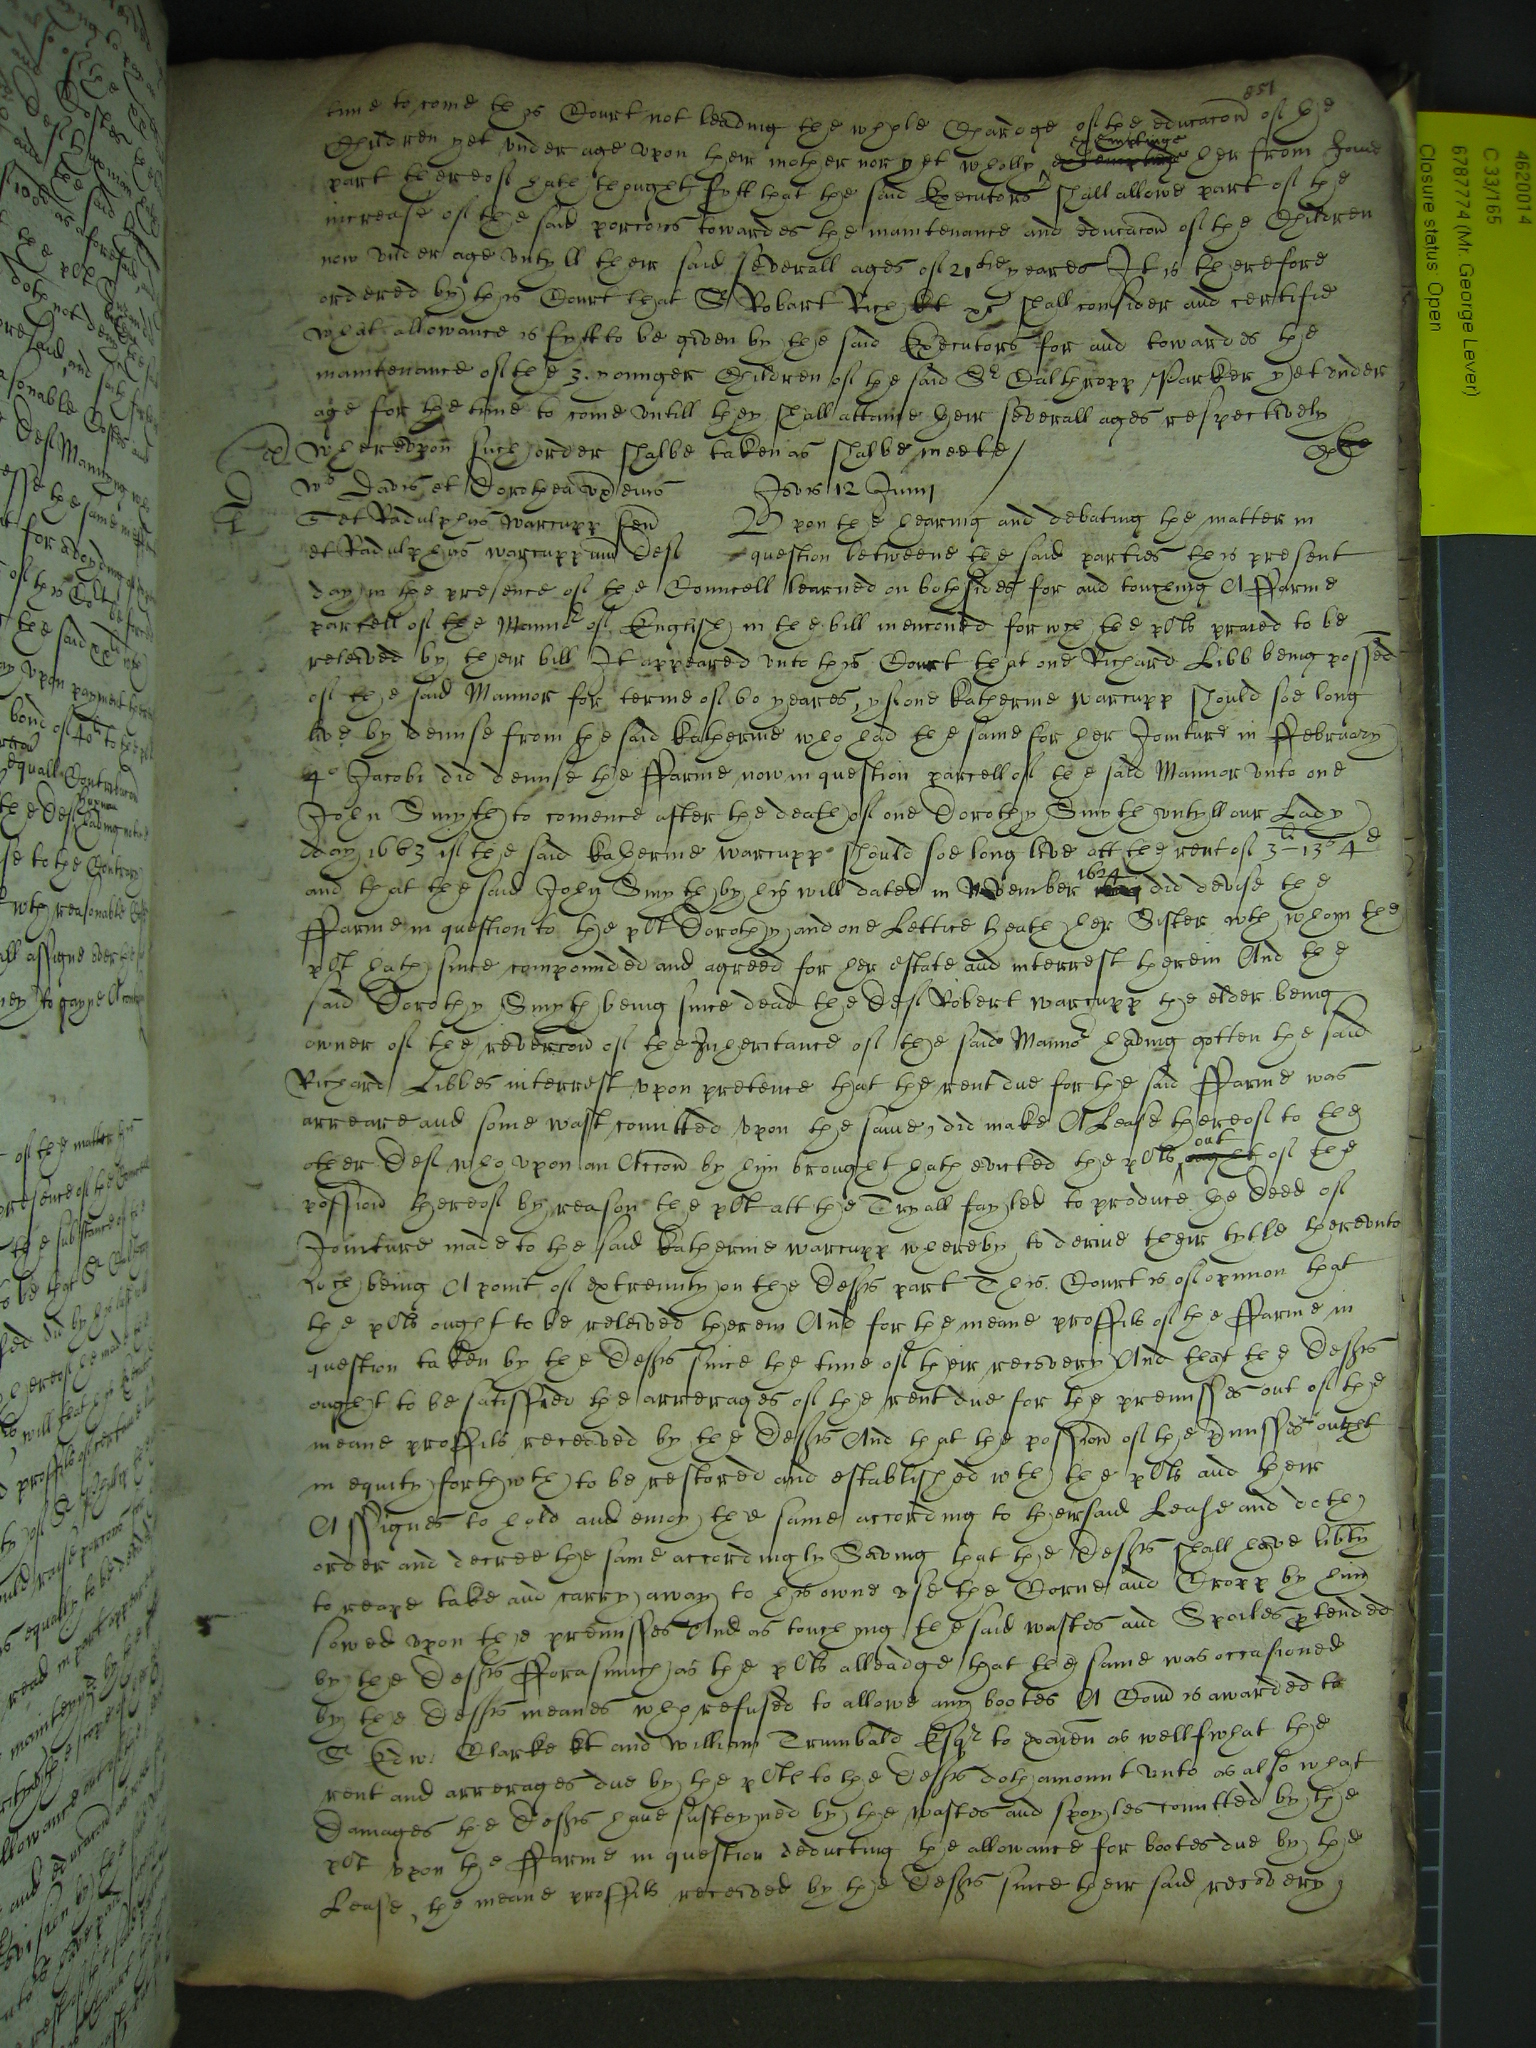 851
time to come this Court not leading the whole Chardge of the educacon of the
Children yet under age upon their mother nor yet wholly exemptinge her from some
part thereof hath thought fytt that the said Executors shall allowe part of the
increase of the said porcons towardes the maintenance and educacon of the Children
now under age untyll their said severall ages of 21tie yeares It is therefore
ordered by this Court that Sr Robart Rich kt &c shall consider and certifie
What allowance is fytt to be given by the said Executors for and towardes the
maintenance of the 3. younger Children of the said Sr Calthropp Parker yet under
age for the time to come untill they shall attaine their severall ages respectively
Whereupon such order shalbe taken as shalbe meete /
Ws Davis et Dorothea ux eius Jovis 12 Junij
T et Radulphus Warcupp sen Upon the hearing and debating the matter in
et Radulphus Warcupp iun Def question betweene the said parties this present
day in the presence of the Councell learned on both sides for and touching A Farme
parcell of the Mannor of English in the bill menconed for wch the plts praied to be
releived by their bill It appeared unto this Court that one Richard Libb being possed
of the said Mannor for terme of 60 yeares, yf one Katherine Warcupp should soe long
live by demise from the said Katherine who had the same for her Jointure in February
4o Jacobi did demise the Farme now in question parcell of the said Mannor unto one
John Smyth to comence after the death of one Dorothy Smyth untyll our Lady
day 1663 if the said Katherine Warcupp should soe long live att the rent of 3li 13s 4d
and that the said John Smyth by his will dated in November 1624 did devise the
Farme in question to the plt Dorothy and one Lettice Heath her Sister wth whom the
plt hath since compounded and agreed for her estate and interrest therein And the
said Dorothy Smyth being since dead the Def Robert Warcupp the elder being
owner of the revercon of the Inheritance of the said Mannor having gotten the said
Richard Libbes interrest upon pretence that the rent due for the said Farme was
arreare and some wast comitted upon the same, did make A Lease thereof to the
other Def who upon an Accon by him brought hath evicted the plts out of the
possession thereof by reason the plt att the Tryall fayled to produce the deed of
Jointure made to the said Katherine Warcupp whereby to derive their tytle thereunto
Wch being A point of extremity on the Defts part This Court is of opinion that
the plts ought to be releived therein And for the meane proffits of the Farme in
question taken by the Defts since the time of their recovery And that the Defts
ought to be satisfied the arrerages of the rent due for the premisses out of the
meane proffits receaved by the Defts And that the possion of the pmisses ought
in equity forthwth to be restored and established wth the plts and their
Assignes to hold and enioy the same according to their said Lease and doth
order and decree the same accordingly Saving that the Defts shall have libty
to reape take and carry away to his owne use the Corne and Cropp by him
sowed upon the premisses And as touching the said wastes and Spoiles ptended
by the Defts Forasmuch as the plts alleadge that the same was occasioned
by the Defts meanes who refused to allowe any bootes A Comn is awarded to
Sr Edw: Clarke kt and William Trumbald Esqr to examn as well what the
rent and arrerages due by the plts to the Defts doth amount unto as also what
Damages the Defts have susteyned by the wastes and spoyles comitted by the
plt upon the Farme in question deducting the allowance for bootes due by the
Lease, the meane proffits received by the Defts since their said recovery,
4620014
C 33/165
6787774 (Mr. George Lever)
Closure status: Open